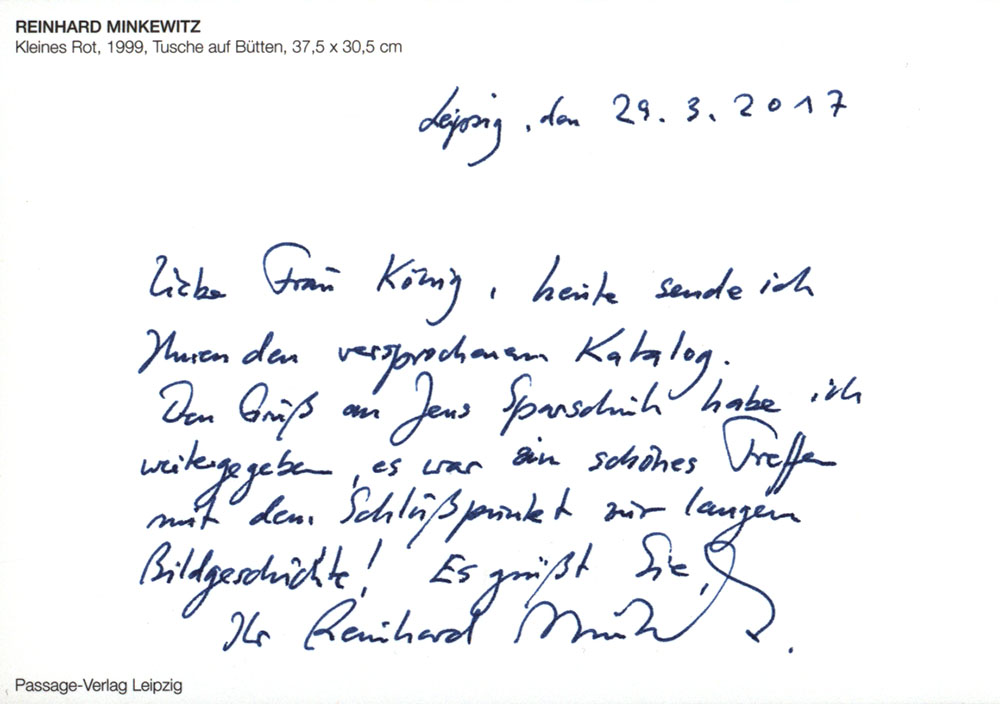 REINHARD MINKEWITZ
Kleines Rot, 1999, Tusche auf Bütten, 37,5 x 30,5 cm
Leipzig, den 29. 3. 2017
Liebe Frau König, heute sende ich
Ihnen den versprochenen Katalog.
Den Gruß an Jens Sparschuh habe ich
weitergegeben, es war ein schönes Treffen
mit dem Schlußpunkt zur langen
Bildgeschichte! Es grüßt Sie,
Ihr Reinhard Minkewitz.
Passage-Verlag Leipzig